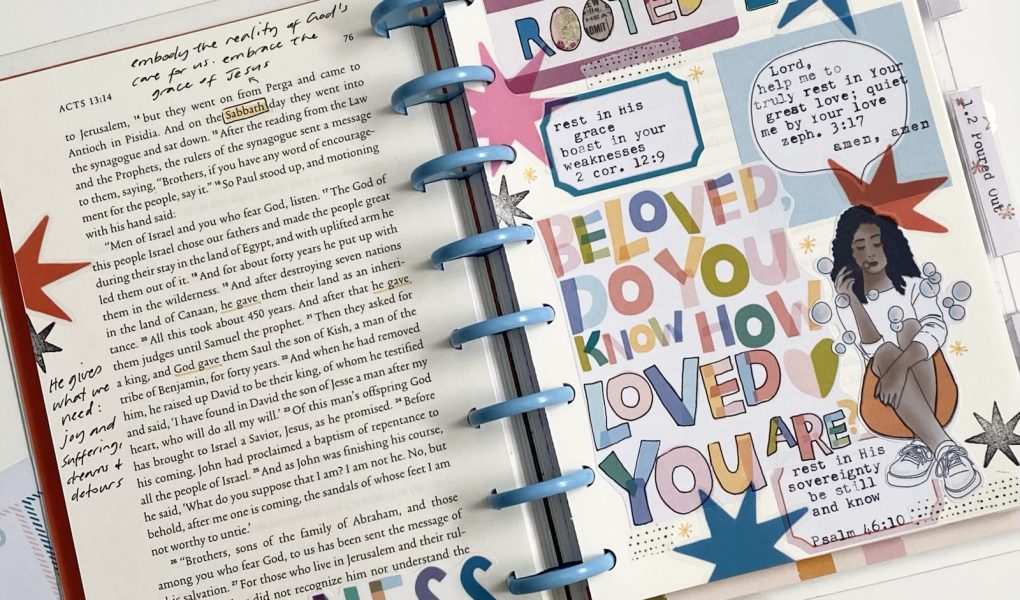 embody the reality of God's
care for us. embrace the
grace of Jesus
76
ACTS 13:14
to Jerusalem, 14 but they went on from Perga and came to
Antioch in Pisidia. And on the Sabbath day they went into
the synagogue and sat down. 15 After the reading from the Law
and the Prophets, the rulers of the synagogue sent a message
to them, saying, “Brothers, if you have any word of encourage-
ment for the people, say it.” 16 So Paul stood up, and motioning
with his hand said:
“Men of Israel and you who fear God, listen. 17 The God of
this people Israel chose our fathers and made the people great
during their stay in the land of Egypt, and with uplifted arm he
led them out of it. 18 And for about forty years he put up with
them in the wilderness. 19 And after destroying seven nations
in the land of Canaan, he gave them their land as an inheri-
tance. 20 All this took about 450 years. And after that he gave
them judges until Samuel the prophet. 21 Then they asked for
a king, and God gave them Saul the son of Kish, a man of the
tribe of Benjamin, for forty years. 22 And when he had removed
him, he raised up David to be their king, of whom he testified
and said, ‘I have found in David the son of Jesse a man after my
heart, who will do all my will.’ 23 Of this man's offspring God
has brought to Israel a Savior, Jesus, as he promised. 24 Before
his coming, John had proclaimed a baptism of repentance to
all the people of Israel. 25 And as John was finishing his course,
he said, ‘What do you suppose that I am? I am not he. No, but
behold, after me one is coming, the sandals of whose feet I am
not worthy to untie.’
26 “Brothers, sons of the family of Abraham, and those
among you who fear God, to us has been sent the message of
his salvation. 27 For those who live in Jerusalem and their rul-
did not recognize him nor understand the
He gives
what we
need:
joy and
suffering;
detours
ROOTED
ADMIT
rest in His
grace
boast in your
weaknesses
2 cor. 12:9
Lord,
help me to
truly rest in Your
great love; quiet
me by Your love
zeph. 3:17
amen, amen
BELOVED,
DO YOU
KNOW HOW
LOVED
YOU ARE?
rest in His
sovereignty
be still
and know
Psalm 46:10
1.2 Poured Out